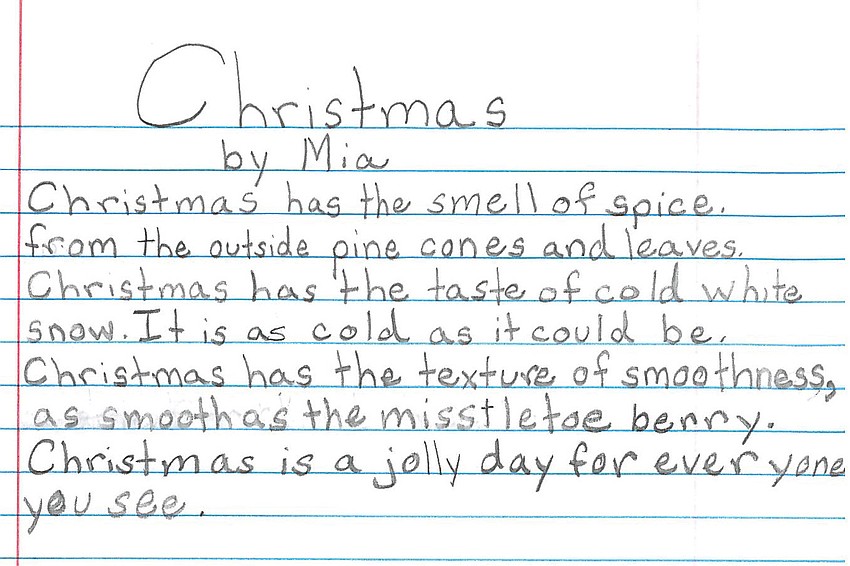 Christmas
by Mia
Christmas has the smell of spice.
from the outside pine cones and leaves.
Christmas has the taste of cold white
snow. It is as cold as it could be.
Christmas has the texture of smoothness,
as smooth as the misstletoe berry.
Christmas is a jolly day for everyone
you see.